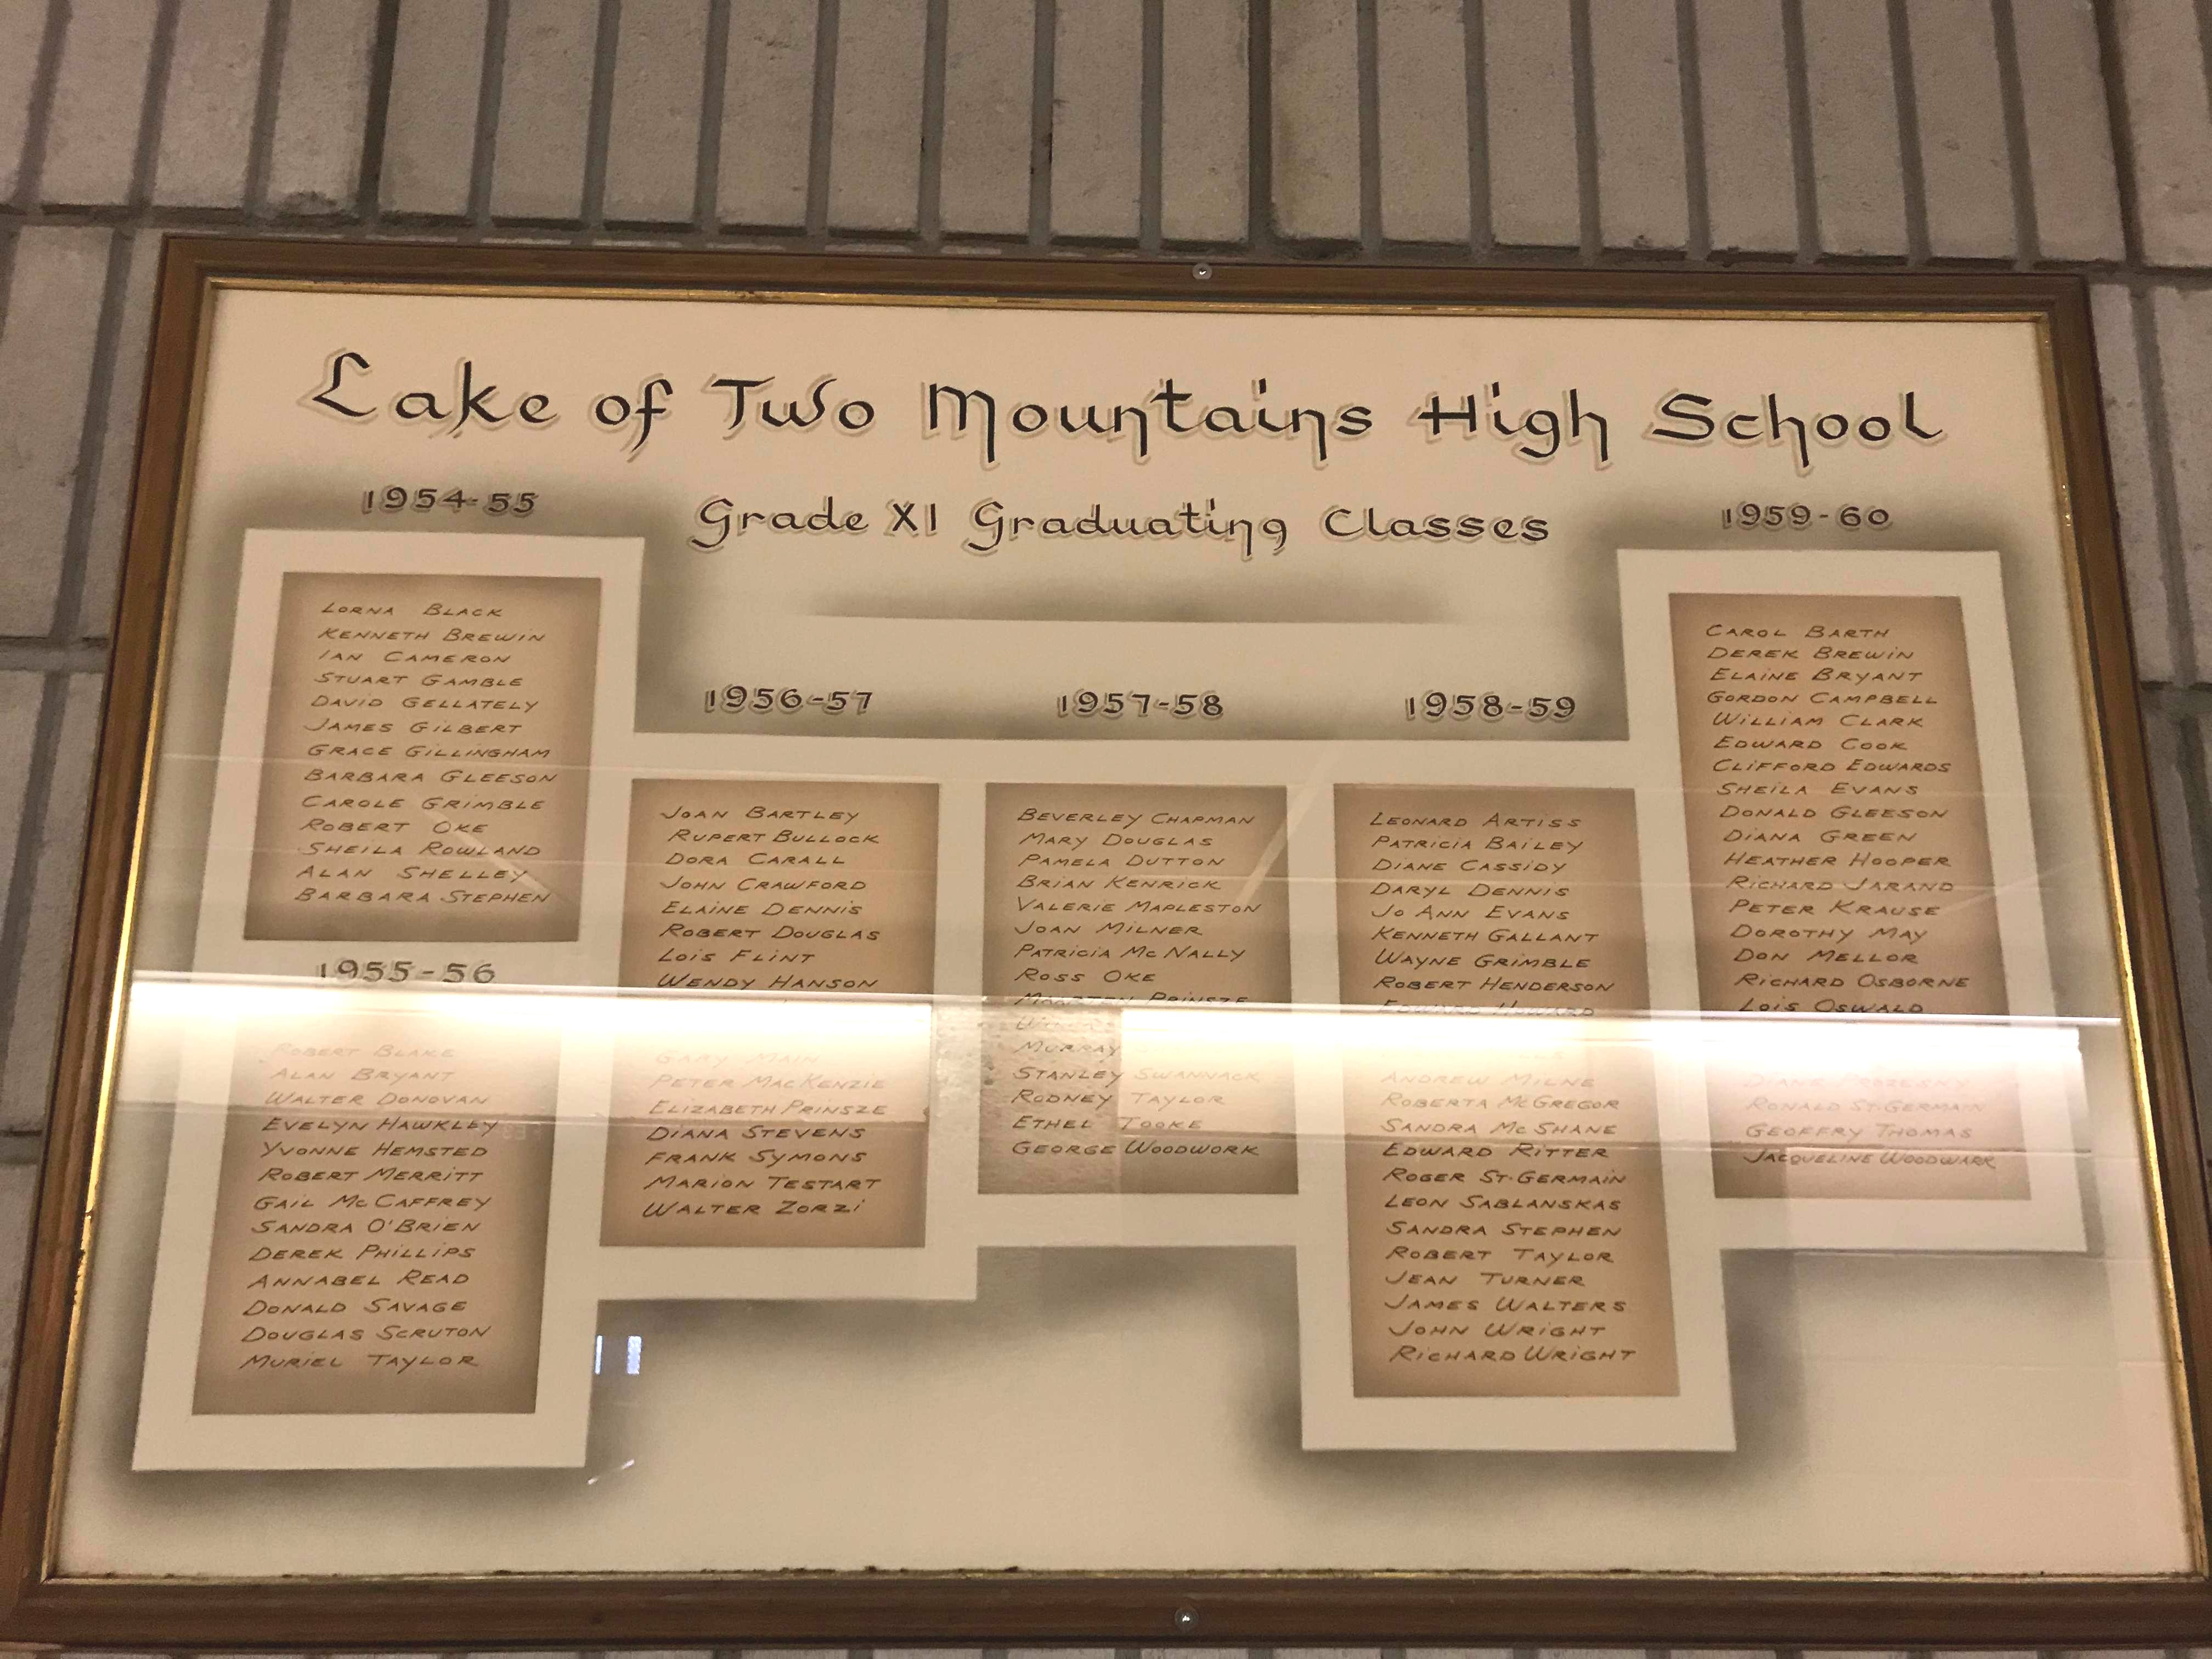 Lake of Two Mountains High School
Grade XI Graduating Classes
1954-55
LORNA BLACK
KENNETH BREWIN
IAN CAMERON
STUART GAMBLE
DAVID GELLATELY
JAMES GILBERT
GRACE GILLINGHAM
BARBARA GLEESON
CAROLE GRIMBLE
ROBERT OKE
SHEILA ROWLAND
ALAN SHELLEY
BARBARA STEPHEN
1955-56
ROBERT BLAKE
ALAN BRYANT
WALTER DONOVAN
EVELYN HAWKLEY
YVONNE HEMSTED
ROBERT MERRITT
GAIL McCAFFREY
SANDRA O'BRIEN
DEREK PHILLIPS
ANNABEL READ
DONALD SAVAGE
DOUGLAS SCRUTON
MURIEL TAYLOR
1956-57
JOAN BARTLEY
RUPERT BULLOCK
DORA CARALL
JOHN CRAWFORD
ELAINE DENNIS
ROBERT DOUGLAS
LOIS FLINT
WENDY HANSON
GARY MAIN
PETER MACKENZIE
ELIZABETH PRINSZE
DIANA STEVENS
FRANK SYMONS
MARION TESTART
WALTER ZORZI
1957-58
BEVERLEY CHAPMAN
MARY DOUGLAS
PAMELA DUTTON
BRIAN KENRICK
VALERIE MAPLESTON
JOAN MILNER
PATRICIA McNALLY
ROSS OKE
PRINSZE
MURRAY
STANLEY SWANNACK
RODNEY TAYLOR
ETHEL TOOKE
GEORGE WOODWORK
1958-59
LEONARD ARTISS
PATRICIA BAILEY
DIANE CASSIDY
DARYL DENNIS
JO ANN EVANS
KENNETH GALLANT
WAYNE GRIMBLE
ROBERT HENDERSON
EDWARD HOWARD
ANDREW MILNE
ROBERTA McGREGOR
SANDRA McSHANE
EDWARD RITTER
ROGER ST·GERMAIN
LEON SABLANSKAS
SANDRA STEPHEN
ROBERT TAYLOR
JEAN TURNER
JAMES WALTERS
JOHN WRIGHT
RICHARD WRIGHT
1959-60
CAROL BARTH
DEREK BREWIN
ELAINE BRYANT
GORDON CAMPBELL
WILLIAM CLARK
EDWARD COOK
CLIFFORD EDWARDS
SHEILA EVANS
DONALD GLEESON
DIANA GREEN
HEATHER HOOPER
RICHARD JARAND
PETER KRAUSE
DOROTHY MAY
DON MELLOR
RICHARD OSBORNE
LOIS OSWALD
RONALD ST·GERMAIN
GEOFFRY THOMAS
JACQUELINE WOODWARK